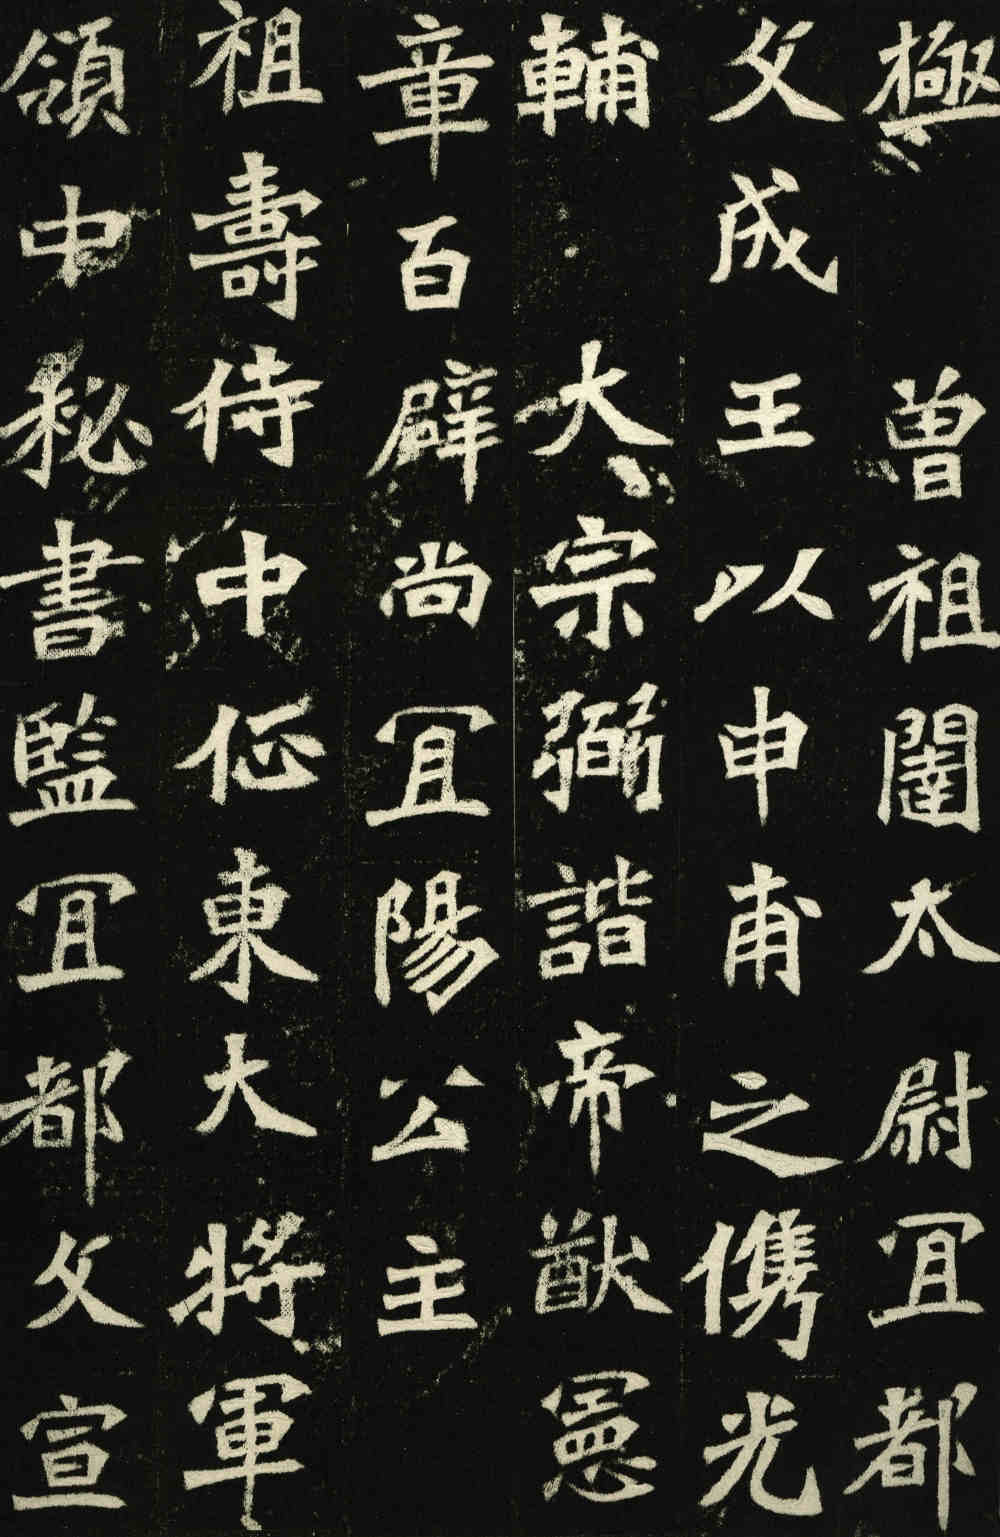 極　曾祖闥太尉宜都
文成王以申甫之儁光
輔　大宗弼諧帝猷憲
章百辟尚宜陽公主
祖壽侍中征東大將軍
領中秘書監宜都文宣